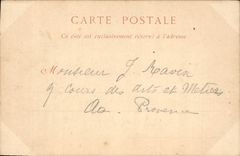 CARTE POSTALE
Ce côté est exclusivement réservé à l'adresse
Monsieur J. Ravin
9 Cours des Arts et Métiers
Aix. Provence